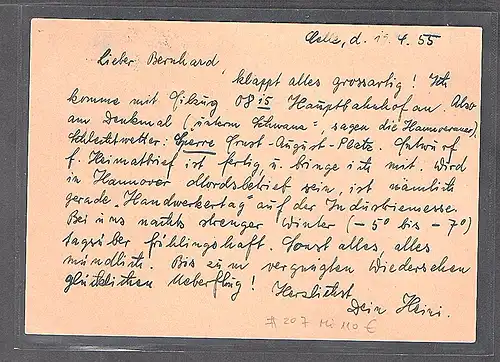 Celle, d. 4. 55
Lieber Bernhard,
klappt alles grossartig! Ich
komme mit Eilzug 08 15 Hauptbahnhof an. Also
am Denkmal („unterm Schwanz", sagen die Hannoveraner),
Schlechtwetter: Sperre Ernst-August-Platz. Entwurf
f. Heimatbrief ist fertig u. bringe ich mit. Wird
in Hannover Mordsbetrieb sein, ist nämlich
gerade „Handwerkertag" auf der Industriemesse.
Bei uns nachts strenger Winter (-5° bis -7°)
tagsüber frühlingshaft. Sonst alles, alles
mündlich. Bis zum vergnügten Wiedersehen
glücklichen Ueberflug! Herzlichst
Dein Heini.
# 207 Mi 110 €